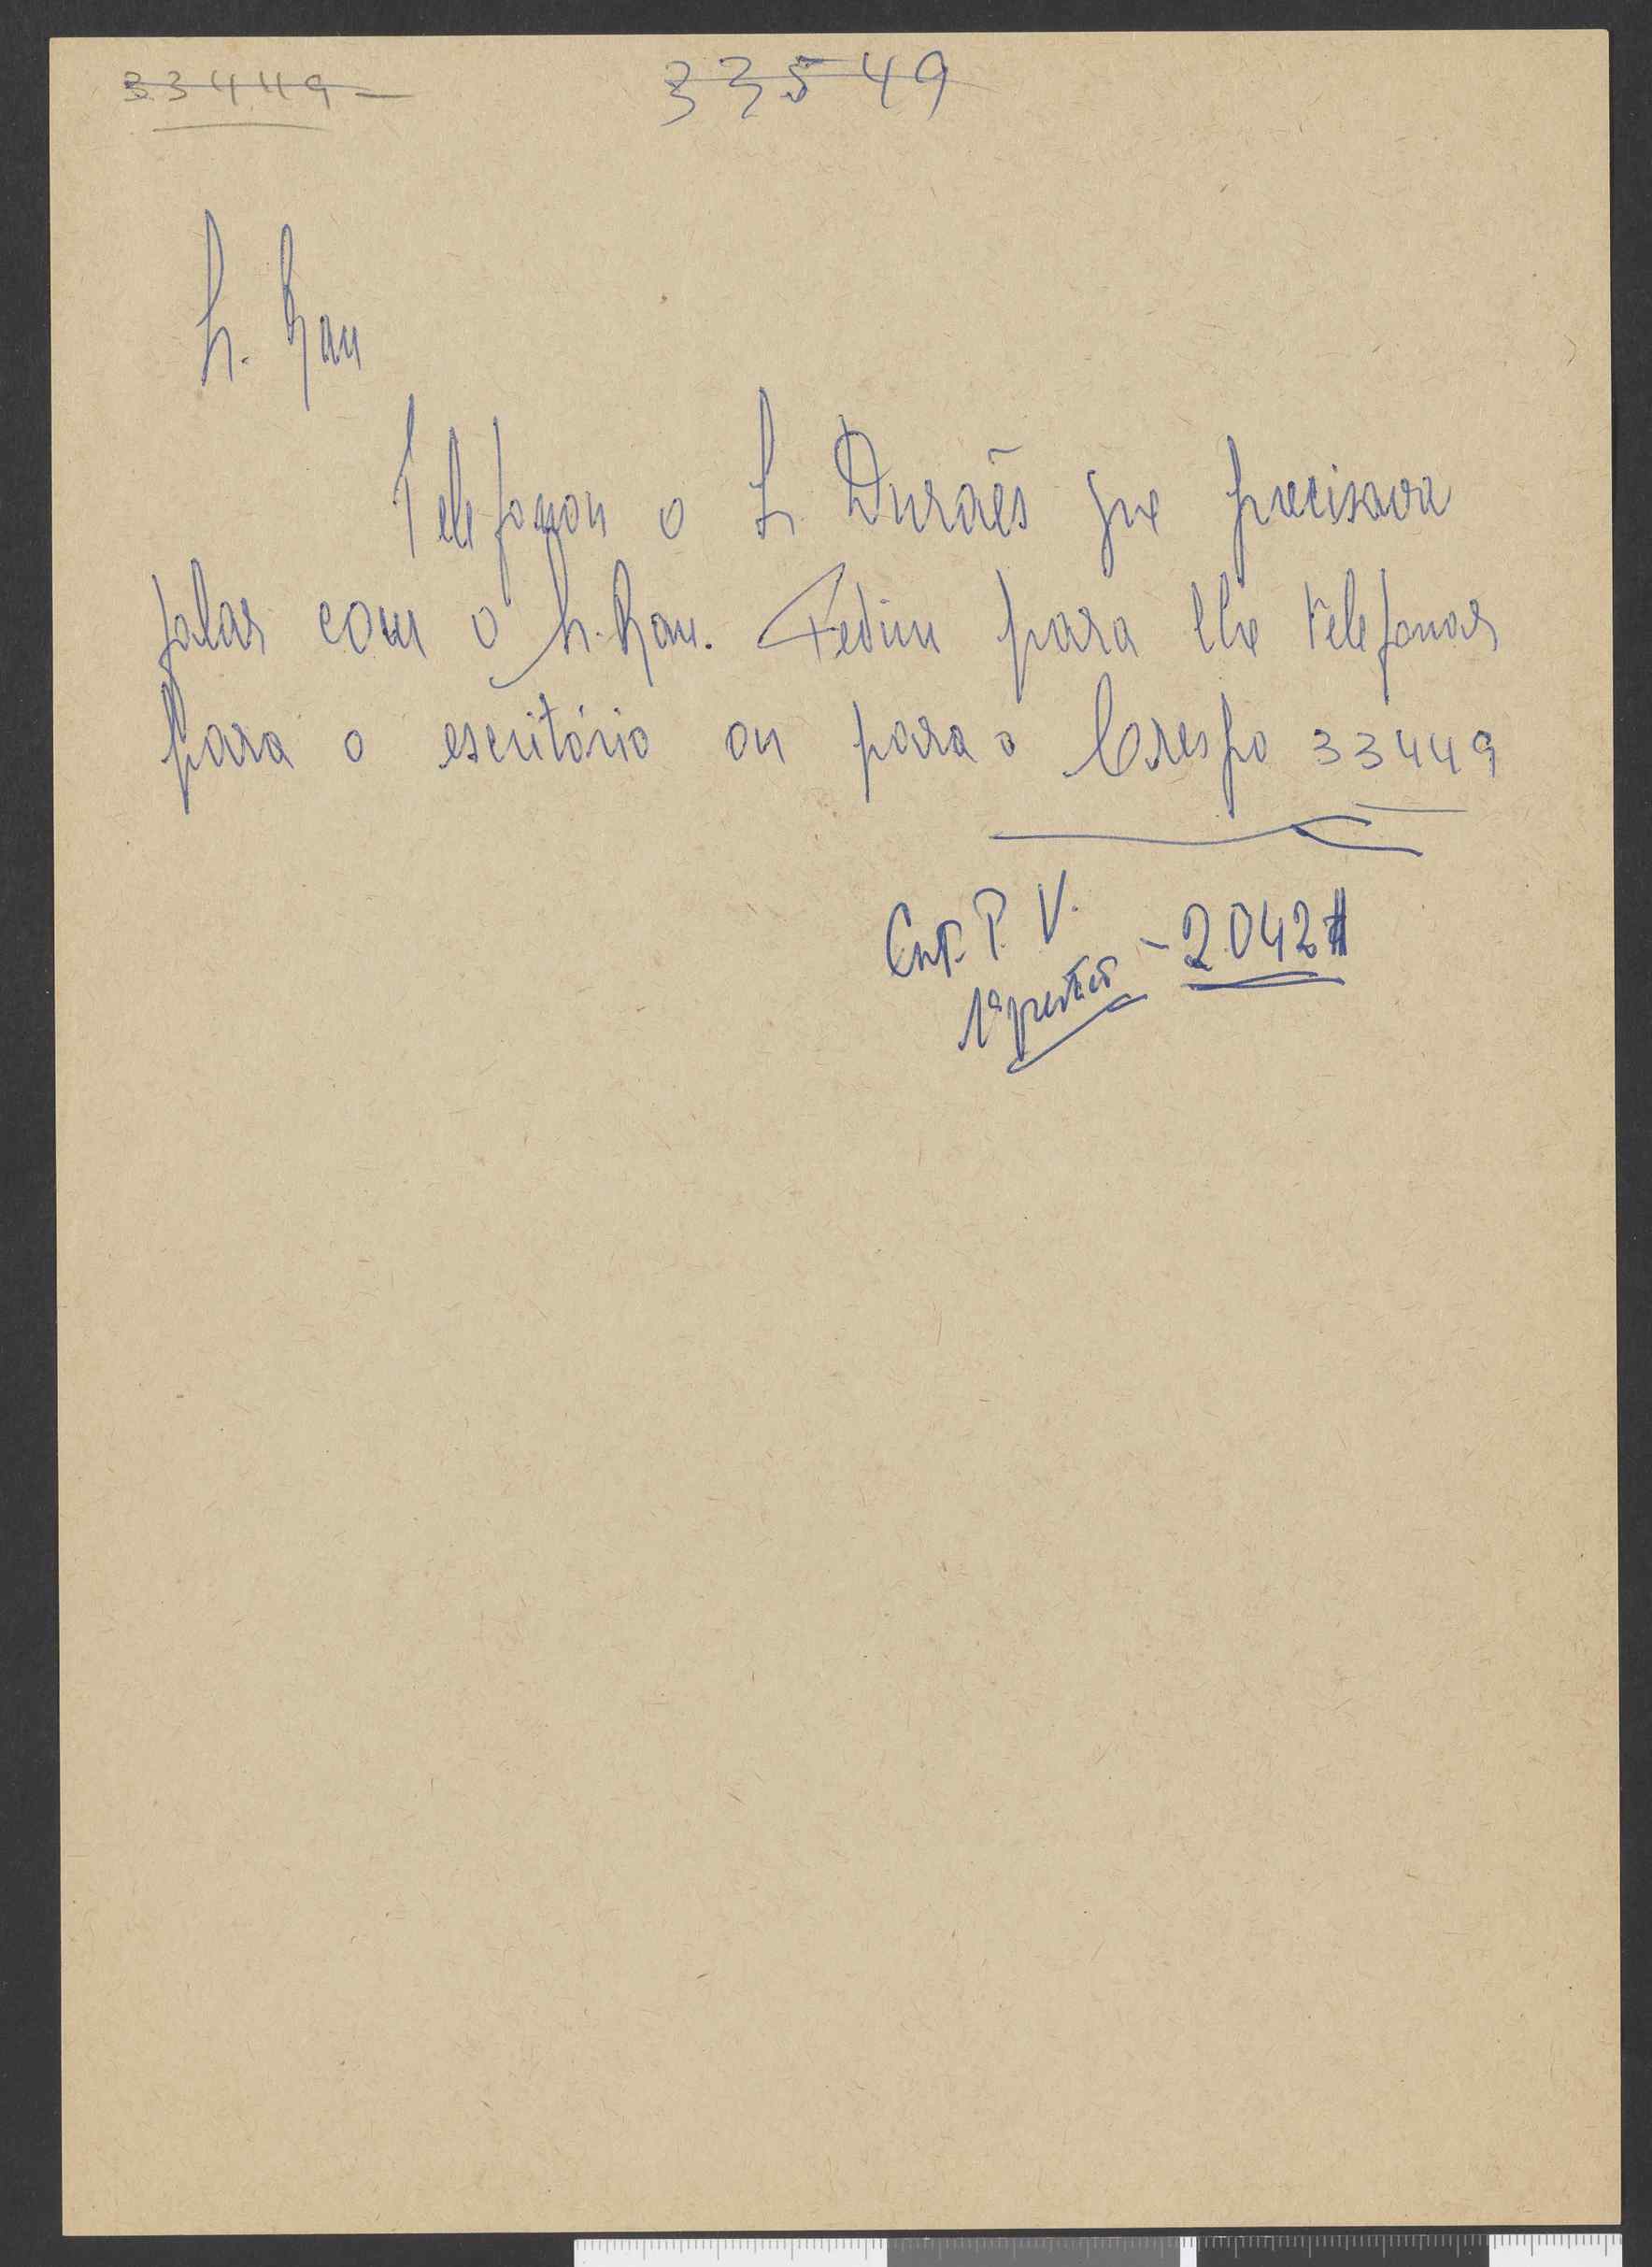 33449 33549
Sr. Rau
Telefonou o Sr. Durães que precisava
falar com o Sr. Rau. Pediu para lhe telefonar
para o escritório ou para o Crespo 33449
P. V.
1ª - 2.042$